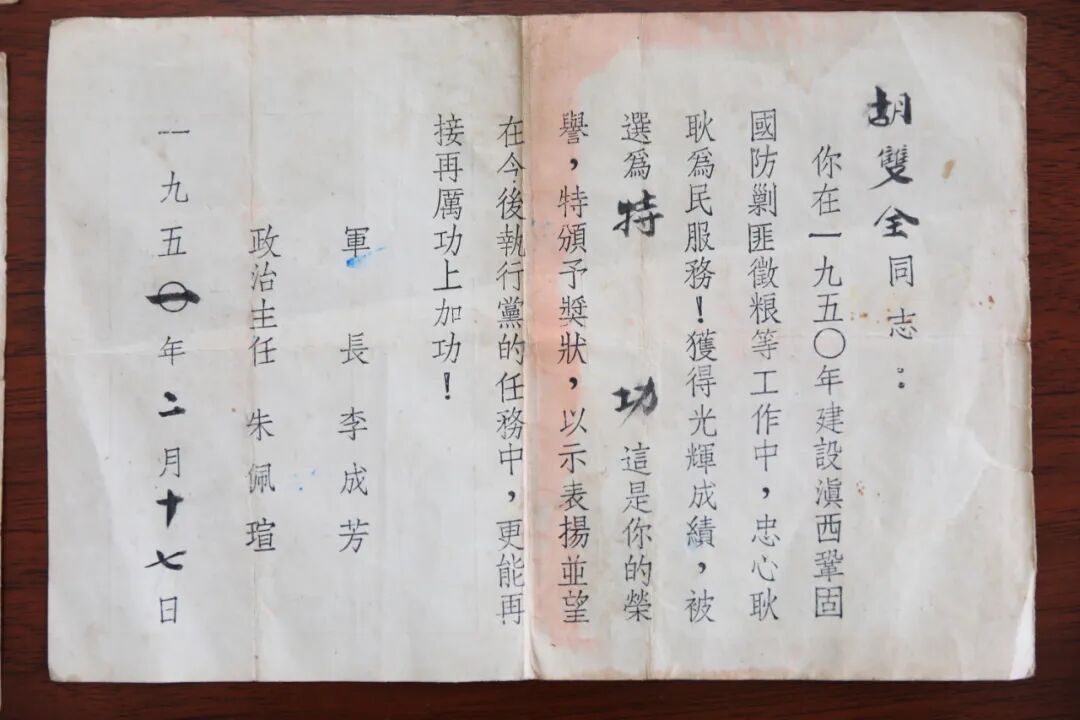 胡雙全同志：
你在一九五〇年建設滇西鞏固
國防剿匪徵粮等工作中，忠心耿
耿爲民服務！獲得光輝成績，被
選爲特功這是你的榮
譽，特頒予獎狀，以示表揚並望
在今後執行黨的任務中，更能再
接再厲功上加功！
軍長 李成芳
政治主任 朱佩瑄
一九五〇年二月十七日